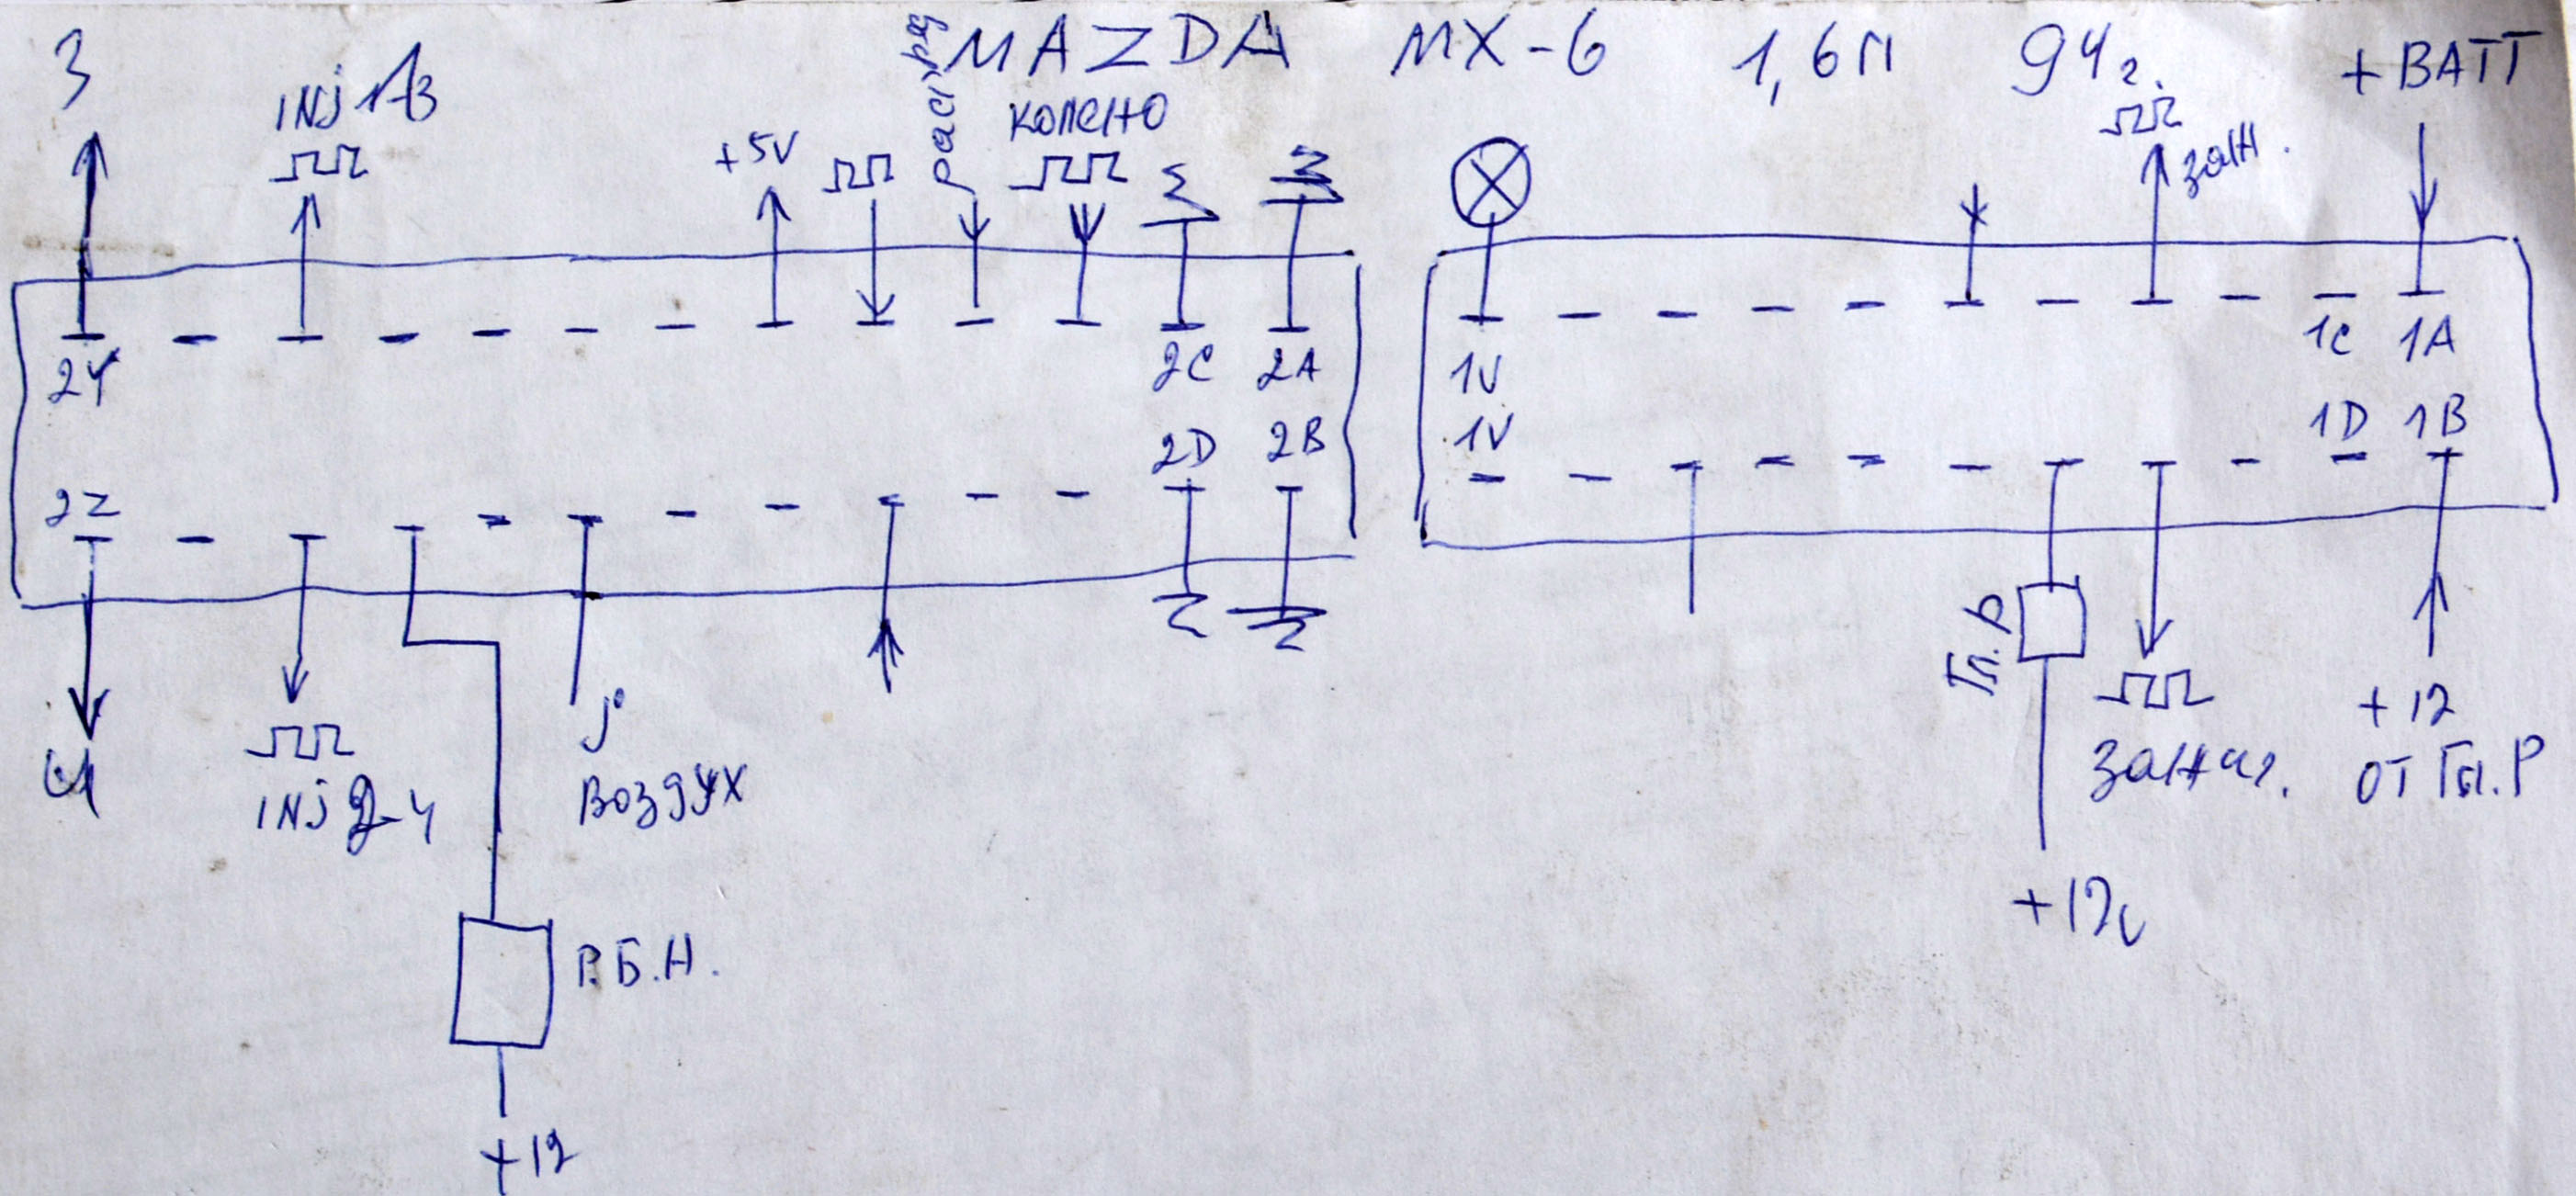 MAZDA MX-6 1,6л 94г.
3
INJ 1-3
+5V
распред
колено
заж.
+BATT
2Y 2C 2A
1V 1C 1A
2Z 2D 2B
1V 1D 1B
4
INJ 2-4
воздух
Гл. Р
зажиг.
+12
от Гл. Р
+12v
Р.Б.Н.
+12